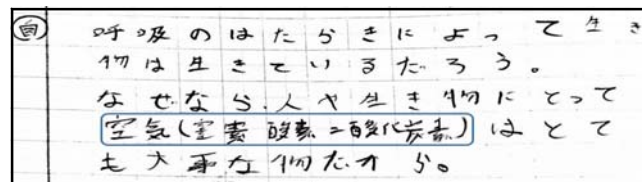 自 呼吸のはたらきによって生き
物は生きているだろう。
なぜなら、人や生き物にとって
空気(窒素 酸素 二酸化炭素)はとて
も大事な物だから。